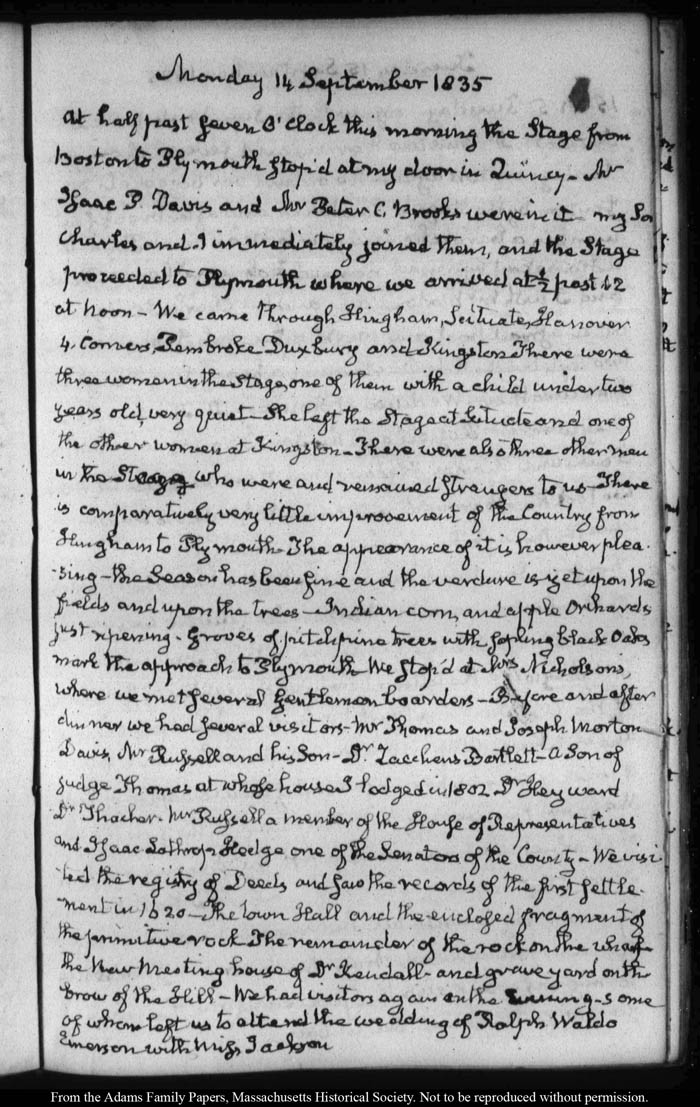 Monday 14 September 1835
At half past seven O'Clock this morning the Stage from
Boston to Plymouth stop'd at my door in Quincy - Mr
Isaac P. Davis and Mr Peter C. Brooks were in it my Son
Charles and I immediately joined them, and the Stage
proceeded to Plymouth where we arrived at ½ past 12
at Noon - We came through Hingham, Scituate, Hanover
4. Corners, Pembroke Duxbury and Kingston There were
three women in the Stage, one of them with a child under two
years old, very quiet - She left the Stage at Scituate and one of
the other women at Kingston - There were also three other men
in the Stage who were and remained strangers to us - There
is comparatively very little improvement of the Country from
Hingham to Plymouth - The appearance of it is however plea-
-sing - the Season has been fine and the verdure is yet upon the
fields and upon the trees - Indian corn, and apple Orchards
just ripening - Groves of pitch pine trees with sapling black Oaks
mark the approach to Plymouth We stop'd at Mrs Nicholson's,
where we met several Gentlemen boarders - Before and after
dinner we had several visitors - Mr Thomas and Joseph Morton
Davis, Mr Russell and his Son - Dr. Zaccheus Bartlett - A Son of
Judge Thomas at whose house I lodged in 1802 Dr Heyward
Dr Thacher. Mr Russell a member of the House of Representatives
and Isaac Lothrop Hedge one of the Senators of the County - We visi
ted the registry of Deeds and saw the records of the first settle-
-ment in 1620 - The town Hall and the enclosed fragment of
the primitive rock The remainder of the rock on the wharf
the New Meeting house of Dr Kendall - and grave yard on the
brow of the Hill - We had visitors again in the Evening - some
of whom left us to attend the wedding of Ralph Waldo
Emerson with Miss Jackson
From the Adams Family Papers, Massachusetts Historical Society. Not to be reproduced without permission.